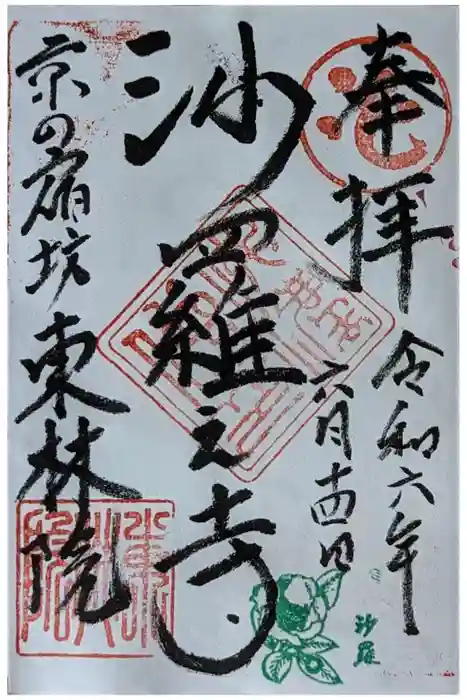 奉拝
令和六年
六月十四日
沙羅之寺
京の宿坊 東林院
沙羅